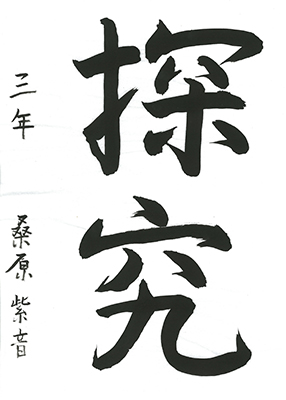 探究
三年 桑原紫音